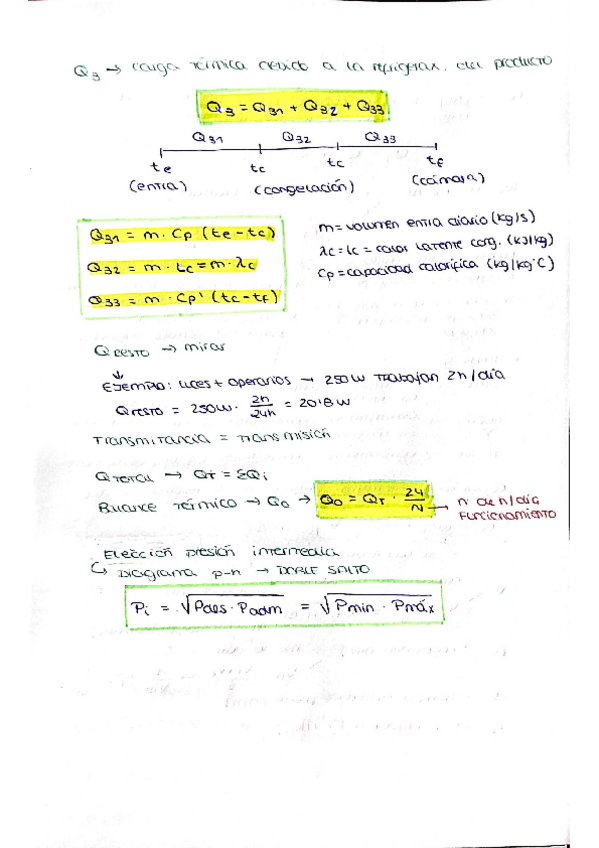 Q3 → carga térmica debido a la refrigerax. del producto
Q3 = Q31 + Q32 + Q33
Q31 Q32 Q33
te tc tc tf
(entra) (congelación) (cámara)
Q31 = m · Cp (te - tc)
Q32 = m · tc = m · λc
Q33 = m · Cp' (tc - tf)
m = volumen entra diario (kg/s)
λc = lc = calor latente cong. (kJ/kg)
Cp = capacidad calorífica (kg/kg°C)
Qresto → mirar
Ejemplo: luces + operarios → 250W trabajan 2h/día
Qresto = 250W · 2h/24h = 20'8 W
Transmitancia = transmisión
QTOTAL → QT = ΣQi
Balance térmico → Q0 → Q0 = QT · 24/N → nº de h/día
funcionamiento
Elección presión intermedia
↳ Diagrama p-h → DOBLE SALTO
Pi = √Pdes · Padm = √Pmin · Pmáx